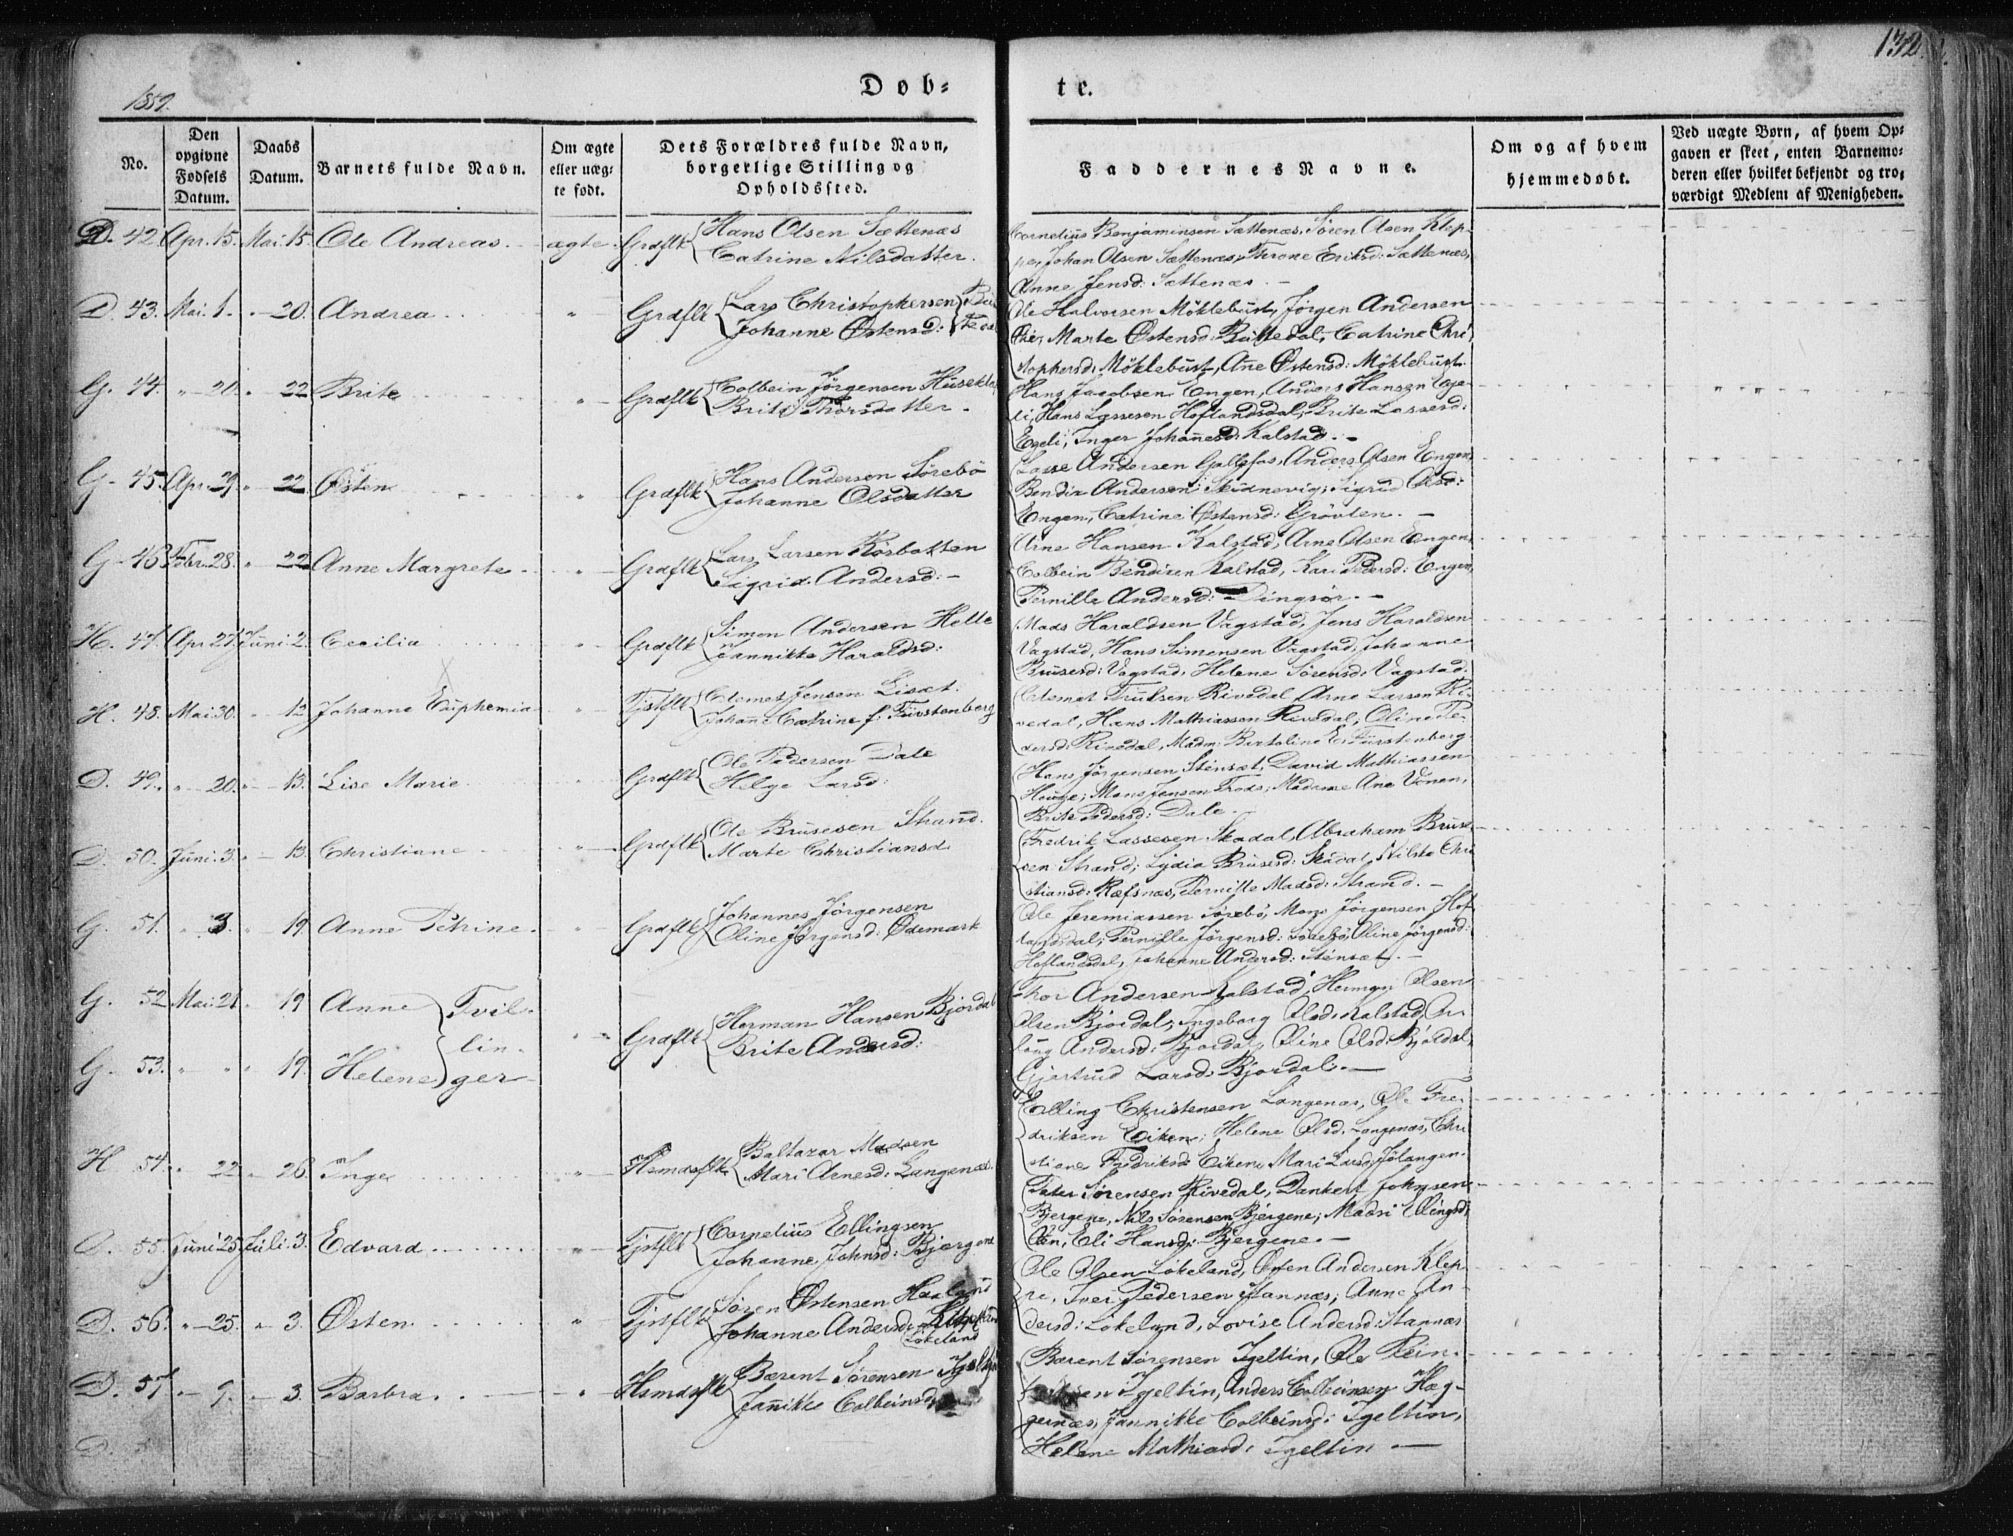 132.
1852.
Døb-
te.
No.
Den opgivne Fødsels Datum.
Daabs Datum.
Barnets fulde Navn.
Om ægte eller uæg- te født.
Dets Forældres fulde Navn, borgerlige Stilling og Opholdssted.
Faddernes Navne.
Om og af hvem hjemmedøbt.
Ved uægte Børn, af hvem Op- gaven er skeet, enten Barnemo- deren eller hvilket bekjendt og tro- værdigt Medlem af Menigheden.
D. 42. Apr. 15. Mai. 15. Ole Andreas. ægte. Grdflk Hans Olsen Sættenæs
Catrine Nilsdatter.
Cornelius Benjaminsen Sættenæs, Søren Olsen Klep-
pe, Johan Olsen Sættenæs, Throne Eriksd: Sættenæs,
Anne Jensd: Sættenæs. -
D. 43. Mai. 1. " 20. Andrea " Grdflk Lars Christophersen
Johanne Østensd:
Ole Halvorsen Møklebust, Jørgen Andersen
Marte Østensd: Catrine Chri-
stophersd: Møklebust, Ane Østensd: Møklebust.
G. 44. " 20. " 22. Brite " Grdflk Colbein Jørgensen
Brite Thorsdatter.
Hans Jacobsen Engen, Anders Hansen Ege-
li, Hans Lassesen Hoflandsdal, Brite Lassesd:
Egeli, Inger Johannesd: Kalstad. -
G. 45. Apr. 29. " 22. Østen " Grdflk Hans Andersen Sørebø
Johanne Olsdatter
Lasse Andersen Anders Olsen Engen,
Bendix Andersen Olsd:
Engen, Catrine Østensd: Grøvlen. -
G. 46. Febr. 28. " 22. Anne Margrete " Grdflk Lars Larsen
Sigrid Andersd: -
Arne Hansen Kalstad, Arne Olsen Engen,
Colbein Bendixen Kalstad, Kari Pedersd: Engen,
Pernille Andersd: Dingsør. -
H. 47. Apr. 27. Juni. 2. Cecilia " Grdflk Simon Andersen Helle
Jannikke Haraldsd:
Mads Haraldsen Vagstad, Jens Haraldsen
Vagstad, Hans Simensen Vagstad, Johanne
Brusesd: Vagstad, Helene Sørensd: Vagstad.
H. 48. Mai. 30. " 12. Johanne Euphemia " Tjstflk Clemet Jensen
Johanne Catrine f: Fürstenberg
Clemet Trulsen Rivedal, Arne Larsen Ri-
vedal, Hans Mathiassen Rivedal, Oline Pe-
dersd: Rivedal, Madm: Bertoline E. Fürstenberg.
D. 49. " 20. " 13. Lise Marie " Grdflk Ole Pedersen Dale
Helge Larsd:
Hans Jørgensen Stensæt, David Mathiassen
Houge, Mons Jensen Madame Ane Vonen,
Brite Pedersd: Dale.
D. 50. Juni. 3. " 13. Christiane " Grdflk Ole Brusesen Strand.
Marte Christiansd.
Fredrik Lassesen Skadal, Abraham Bruse-
sen Strand, Lydia Brusesd: Skadal, Chri-
stiansd: Ræfsnæs, Pernille Madsd: Strand. -
G. 51. " 3. " 19. Anne Petrine. " Grdflk Johannes Jørgensen
Oline Jørgensd: Ødemark
Ole Jeremiassen Sørebø, Mons Jørgensen Hof-
landsdal, Pernille Jørgensd: Sørebø, Oline Jørgensd:
Hoflandsdal, Johanne Andersd: Stensæt. -
G. 52. Mai. 21. " 19. Anne Tvil-
lin-
G. 53. " " " 19. Helene ger
" Grdflk Herman Hansen Bjordal
Brite Andersd:
Thor Andersen Kalstad, Herman Olsen
Olsen Bjordal, Ingeborg Olsd: Kalstad,
Andersd: Bjordal, Oline Olsd: Bjordal,
Gjertrud Larsd: Bjordal. -
H. 54. " 22. " 26. Inge " Hsmdsflk Baltazar Madsen
Mari Arnesd: Langenæs.
Elling Christensen Langenæs, Ole Fre-
driksen Eiken, Helene Olsd: Langenæs, Chri-
stiane Fredriksd: Eiken, Mari Larsd:
D. 55. Juni 25. Juli. 3. Edvard " Tjstflk Cornelius Ellingsen
Johanne Johnsd: Bjergene
Peter Sørensen Rivedal, Dankert Johnsen
Bjergene, Nils Sørensen Bjergene, Madsi Ellingsd:
Eli Hansd: Bjergene. -
D. 56. " 25. " 3. Østen " Tjstflk Søren Østensen Haaland
Johanne Andersd:
Løkeland
Ole Olsen Løkeland, Andersen Klep-
pe, Iver Pedersen Stannæs, Anne An-
dersd: Løkeland, Lovise Andersd: Stannæs
D. 57. " 9. " 3. Barbra. " Hsmdsflk Bærent Sørensen
Jannikke Colbeinsd:
Bærent Sørensen Igeltin, Ole Rein-
Igeltin, Anders Colbeinsen Hæg-
gernæs, Jannikke Colbeinsd: Igeltin,
Helene Mathiasd: Igeltin -
D.